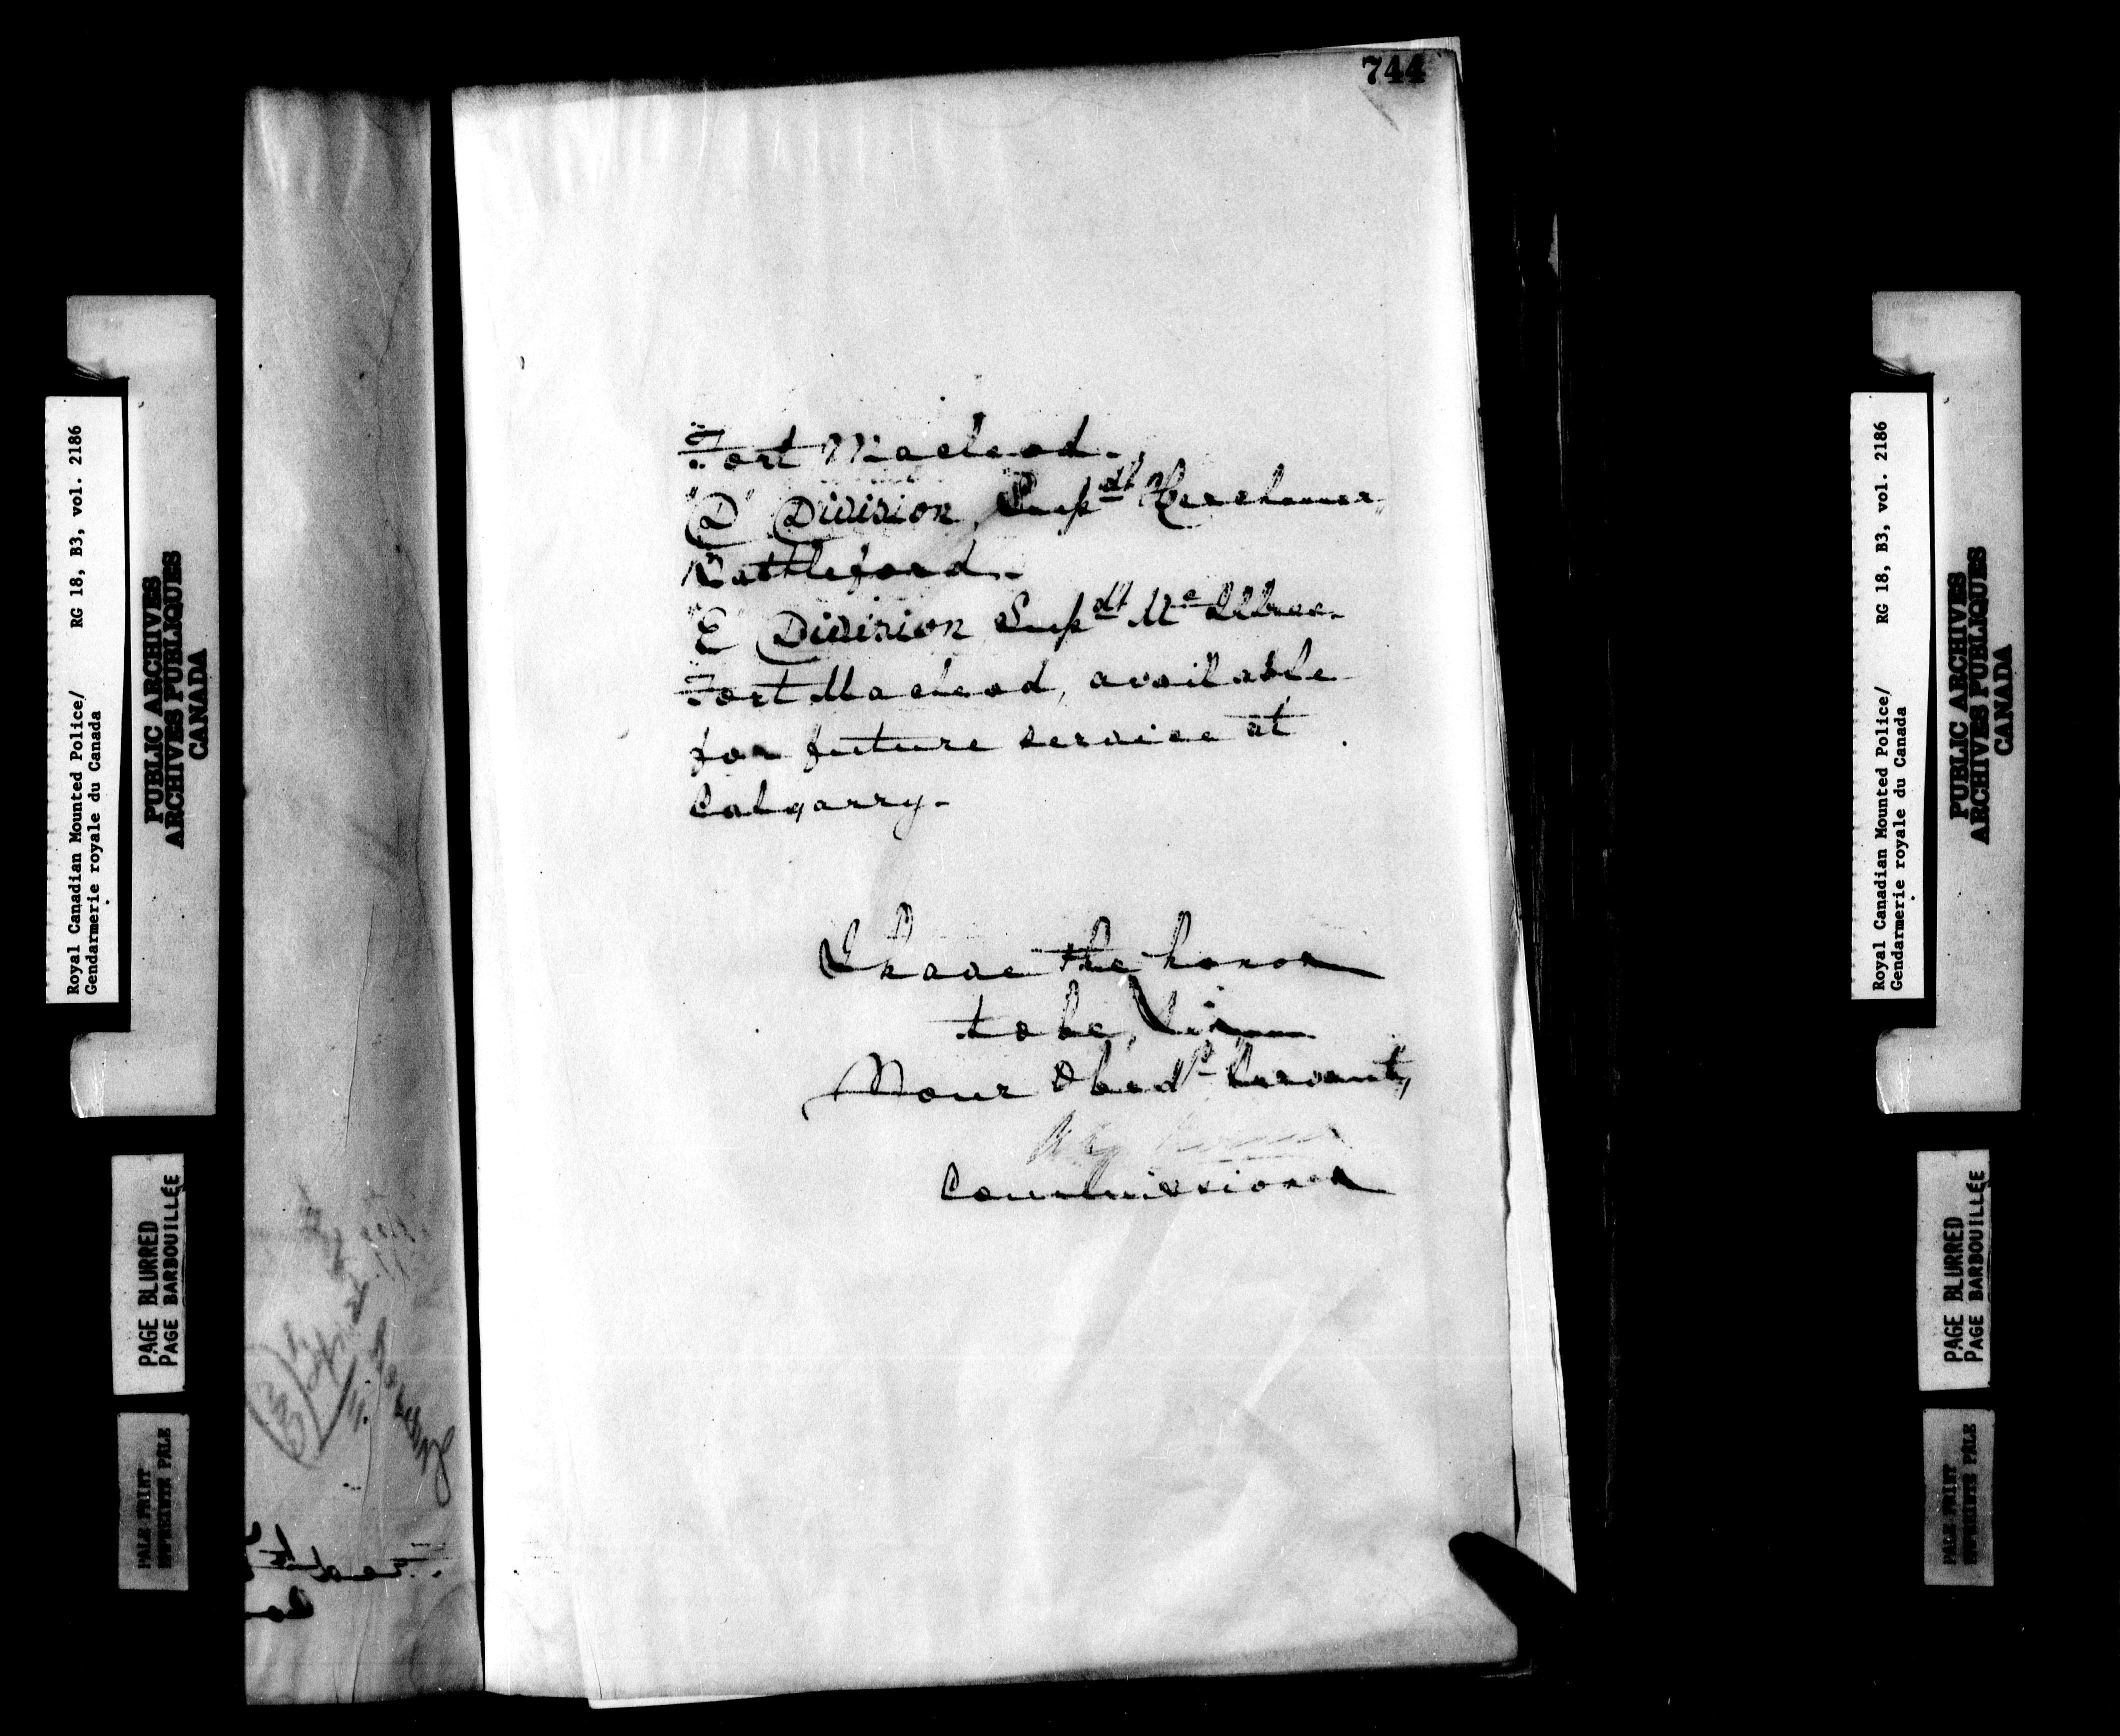 744
Fort Macleod.
"D" Division, Supdt Herchmer,
Battleford.
"E" Division Supdt McIllree.
Fort Macleod, available
for future service at
Calgarry.
I have the honor
to be, Sir
Your Obedt Servant,
Commissioner
Royal Canadian Mounted Police/ RG 18, B3, vol. 2186
Gendarmerie royale du Canada
PUBLIC ARCHIVES
ARCHIVES PUBLIQUES
CANADA
PAGE BLURRED
PAGE BARBOUILLÉE
PALE PRINT
IMPRIMÉE PÂLE
Royal Canadian Mounted Police/ RG 18, B3, vol. 2186
Gendarmerie royale du Canada
PUBLIC ARCHIVES
ARCHIVES PUBLIQUES
CANADA
PAGE BLURRED
PAGE BARBOUILLÉE
PALE PRINT
IMPRIMÉE PÂLE